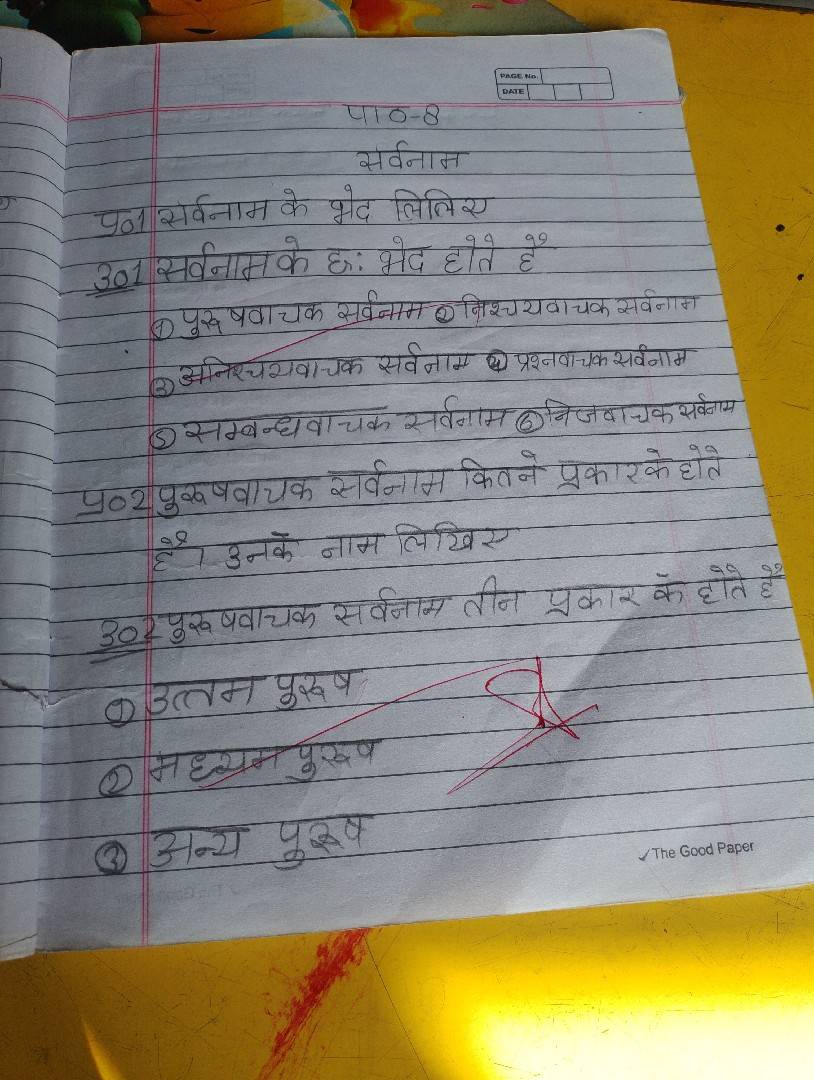 PAGE No.
DATE
पाठ-8
सर्वनाम
प्र०1 सर्वनाम के भेद लिलिए
उ०1 सर्वनाम के छः भेद होते हैं
① पुरूषवाचक सर्वनाम ② निश्चयवाचक सर्वनाम
③ अनिश्चयवाचक सर्वनाम ④ प्रश्नवाचक सर्वनाम
⑤ सम्बन्धवाचक सर्वनाम ⑥ निजवाचक सर्वनाम
प्र०2 पुरूषवाचक सर्वनाम कितने प्रकार के होते
हैं। उनके नाम लिखिए
उ०2 पुरूषवाचक सर्वनाम तीन प्रकार के होते हैं
① उत्तम पुरूष
② मध्यम पुरूष
③ अन्य पुरूष
✓The Good Paper